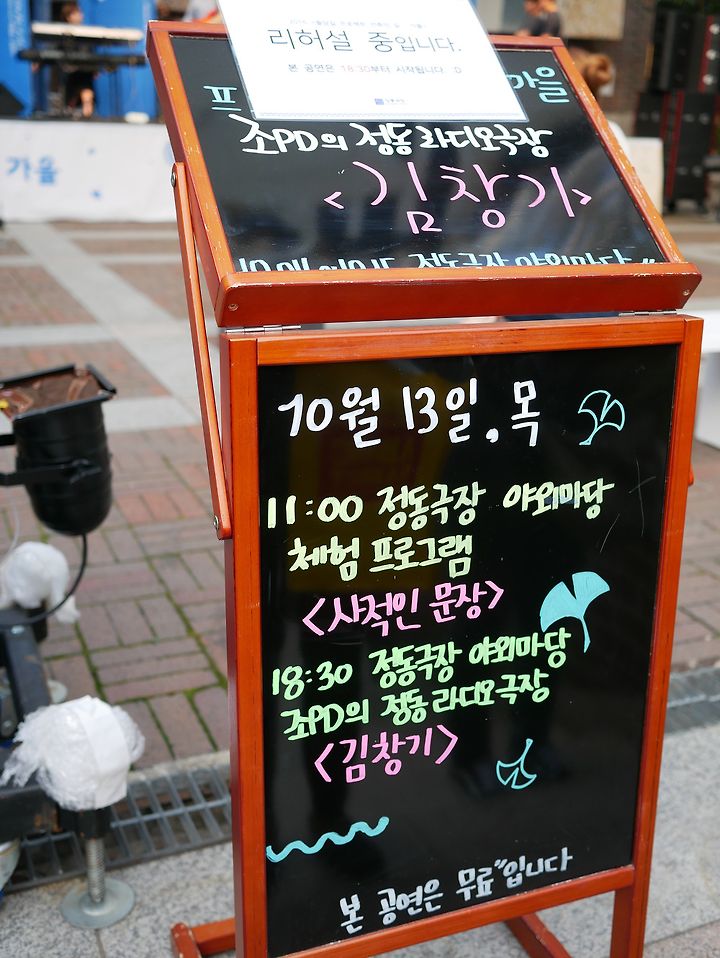 리허설 중입니다.
본 공연은 18:30부터 시작됩니다
가을
조PD의 정동 라디오극장
<김창기>
정동극장 야외마당
가을
10월 13일, 목
11:00 정동극장 야외마당
체험 프로그램
<사적인 문장>
18:30 정동극장 야외마당
조PD의 정동 라디오극장
<김창기>
본 공연은 무료"입니다